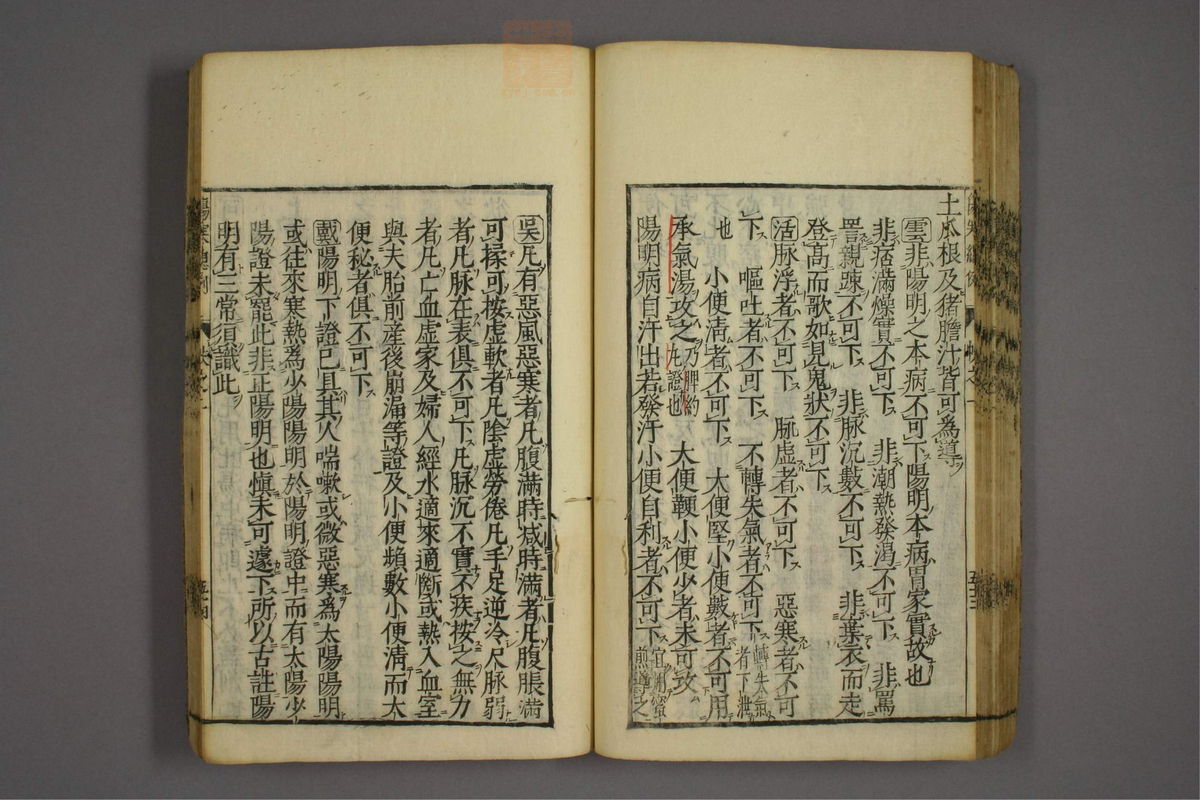 土瓜根及猪膽汁皆可為導
雲非陽明之本病不可下陽明本病胃家實故也
非痞滿燥實不可下　非潮熱發渴不可下　非罵
詈親踈不可下　非脉沉數不可下　非棄衣而走
登高而歌如見鬼狀不可下
活脉浮者不可下　脉虛者不可下　惡寒者不可
下　嘔吐者不可下　不轉失氣者不可下轉失氣者下泄
也　小便淸者不可下　大便堅小便數者不可用
承氣湯攻之乃脾約證也　大便鞕小便少者未可攻
陽明病自汗出若發汗小便自利者不可下宜用蜜煎導之
吳凡有惡風惡寒者凡腹滿時減時滿者凡腹脹滿
可揉可按虛軟者凡陰虛勞倦凡手足逆冷尺脉弱
者凡脉在表俱不可下凡脉沉不實不疾按之無力
者凡亡血虛家及婦人經水適來適斷或熱入血室
與夫胎前産後崩漏等證及小便頻數小便淸而大
便秘者俱不可下
戴陽明下證已具其人喘嗽或微惡寒為太陽陽明
或往來寒熱為少陽陽明於陽明證中而有太陽少
陽證未罷此非正陽明也愼未可遽下所以古註陽
明有三常須識此